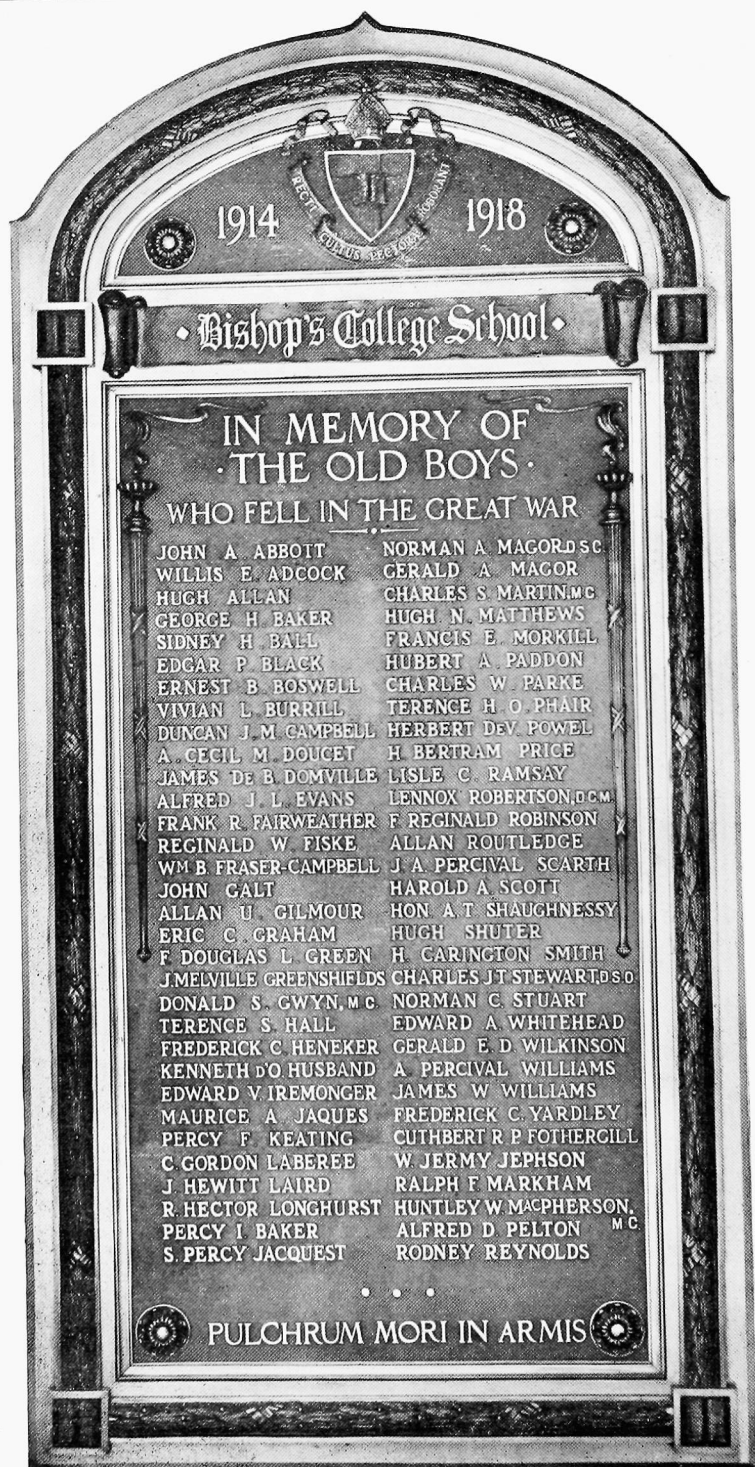 1914 1918
RECTI CULTUS PECTORA ROBORANT
Bishop's College School
IN MEMORY OF
·THE OLD BOYS·
WHO FELL IN THE GREAT WAR
JOHN A. ABBOTT
WILLIS E. ADCOCK
HUGH ALLAN
GEORGE H. BAKER
SIDNEY H. BALL
EDGAR P. BLACK
ERNEST B. BOSWELL
VIVIAN L. BURRILL
DUNCAN J. M. CAMPBELL
A. CECIL M. DOUCET
JAMES DE B. DOMVILLE
ALFRED J. L. EVANS
FRANK R. FAIRWEATHER
REGINALD W. FISKE
WM B. FRASER-CAMPBELL
JOHN GALT
ALLAN U. GILMOUR
ERIC C. GRAHAM
F. DOUGLAS L. GREEN
J. MELVILLE GREENSHIELDS
DONALD S. GWYN, M.C.
TERENCE S. HALL
FREDERICK C. HENEKER
KENNETH D'O. HUSBAND
EDWARD V. IREMONGER
MAURICE A. JAQUES
PERCY F. KEATING
C. GORDON LABEREE
J. HEWITT LAIRD
R. HECTOR LONGHURST
PERCY I. BAKER
S. PERCY JACQUEST
NORMAN A. MAGOR D.S.C.
GERALD A. MAGOR
CHARLES S. MARTIN, M.C.
HUGH N. MATTHEWS
FRANCIS E. MORKILL
HUBERT A. PADDON
CHARLES W. PARKE
TERENCE H. O. PHAIR
HERBERT DEV. POWEL
H. BERTRAM PRICE
LISLE C. RAMSAY
LENNOX ROBERTSON, D.C.M.
F. REGINALD ROBINSON
ALLAN ROUTLEDGE
J. A. PERCIVAL SCARTH
HAROLD A. SCOTT
HON. A. T. SHAUGHNESSY
HUGH SHUTER
H. CARINGTON SMITH
CHARLES J.T. STEWART, D.S.O.
NORMAN C. STUART
EDWARD A. WHITEHEAD
GERALD E. D. WILKINSON
A. PERCIVAL WILLIAMS
JAMES W. WILLIAMS
FREDERICK C. YARDLEY
CUTHBERT R. P. FOTHERGILL
W. JERMY JEPHSON
RALPH F. MARKHAM
HUNTLEY W. MACPHERSON, M.C.
ALFRED D. PELTON
RODNEY REYNOLDS
PULCHRUM MORI IN ARMIS